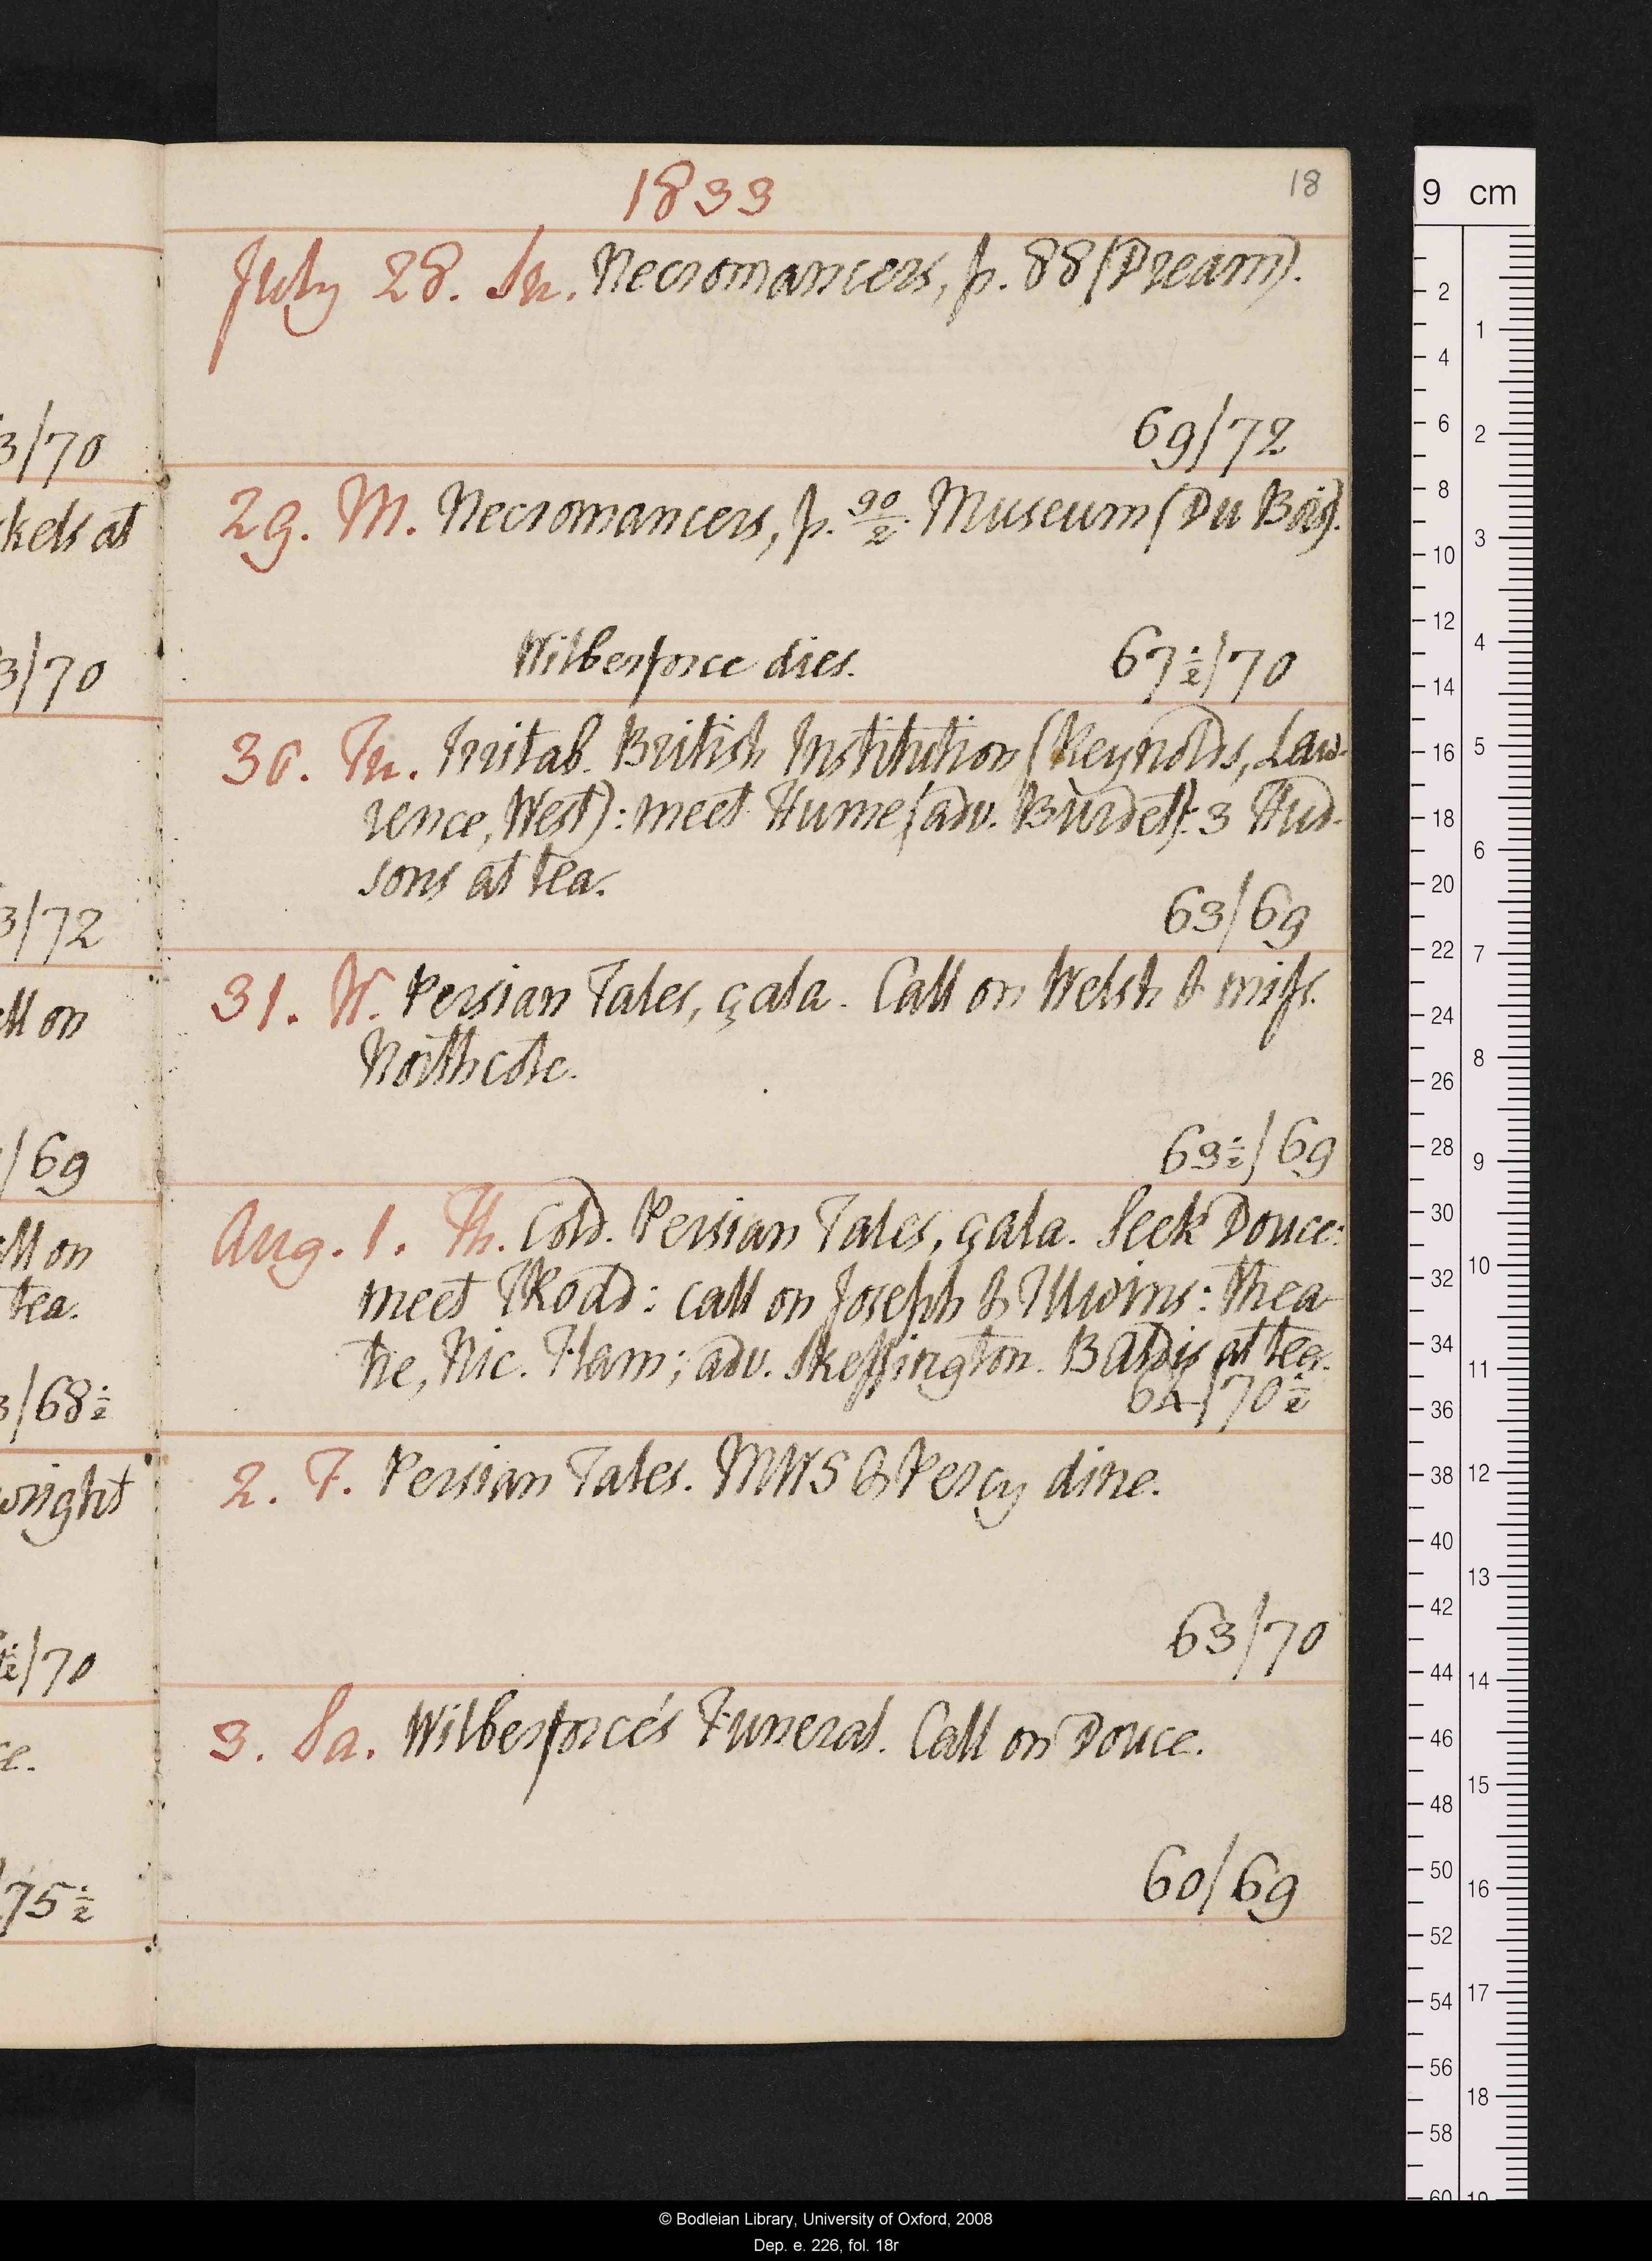 1833
18
July 28. Su. Necromancers, p. 88 (Dream).
69/72
29. M. Necromancers, p. 90/2. Museum (Du Bois).
Wilberforce dies.
67½/70
30. Tu. Irritab. British Institution (Reynolds, Law-
rence, West): meet Hume (adv. Burdet): 3 Hud-
sons at tea.
63/69
31. W. Persian Tales, çala. Call on Welsh & miss
Northcote.
63½/69
Aug. 1. Th. Cold. Persian Tales, çala. Seek Douce:
meet Rodd: call on Joseph & Uwins: thea-
tre, Nic. Flam; adv. Skeffington. Baldis at tea.
64/70½
2. F. Persian Tales. MWS & Percy dine.
63/70
3. Sa. Wilberforce's Funeral. Call on Douce.
60/69
3/70
kels at
3/70
3/72
ll on
/69
ll on
tea.
3/68½
wright
½/70
e.
75½
9 cm
2
4
6
8
10
12
14
16
18
20
22
24
26
28
30
32
34
36
38
40
42
44
46
48
50
52
54
56
58
60
1
2
3
4
5
6
7
8
9
10
11
12
13
14
15
16
17
18
19
© Bodleian Library, University of Oxford, 2008
Dep. e. 226, fol. 18r